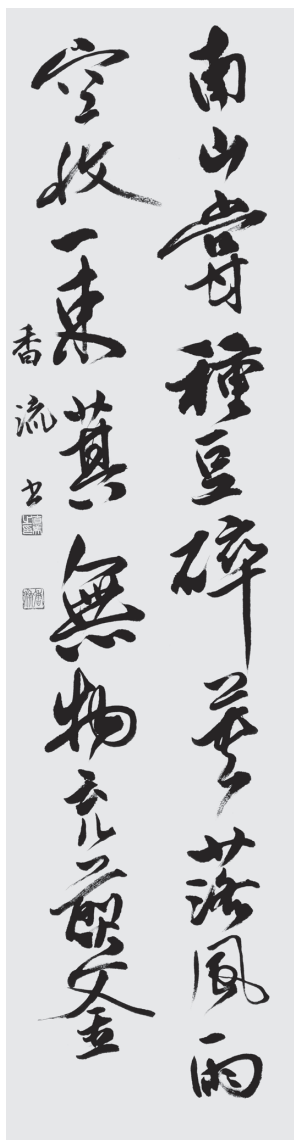 南山嘗種豆碎莢落風雨
空收一束萁無物充煎釜
香流書